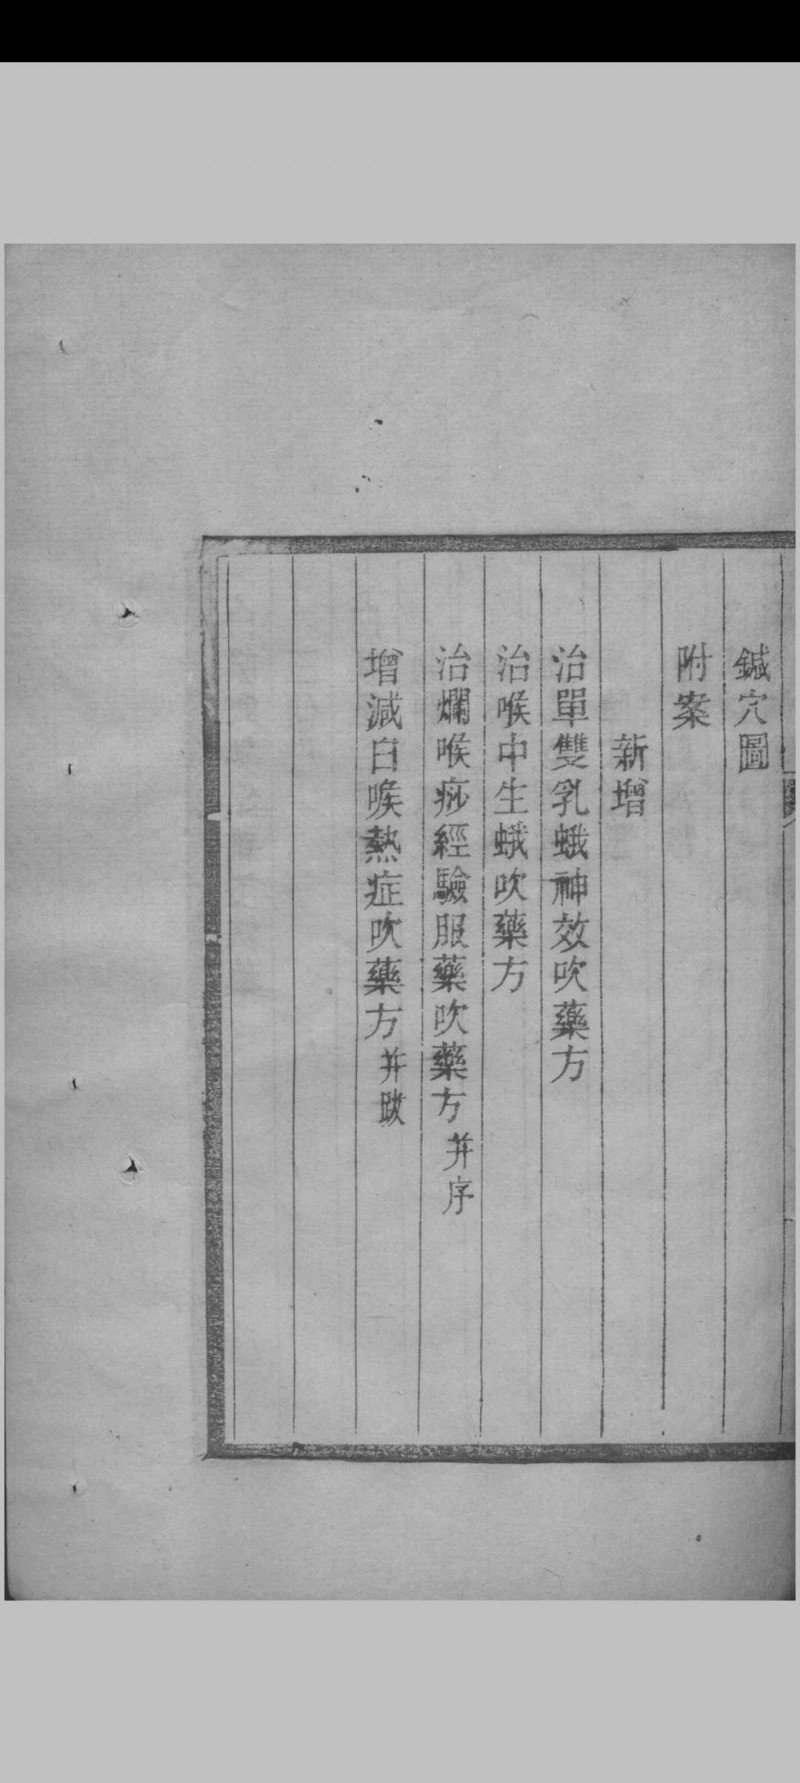 鍼穴圖
附案
新增
治單雙乳蛾神效吹藥方
治喉中生蛾吹藥方
治爛喉痧經驗服藥吹藥方并序
增減白喉熱症吹藥方并跋